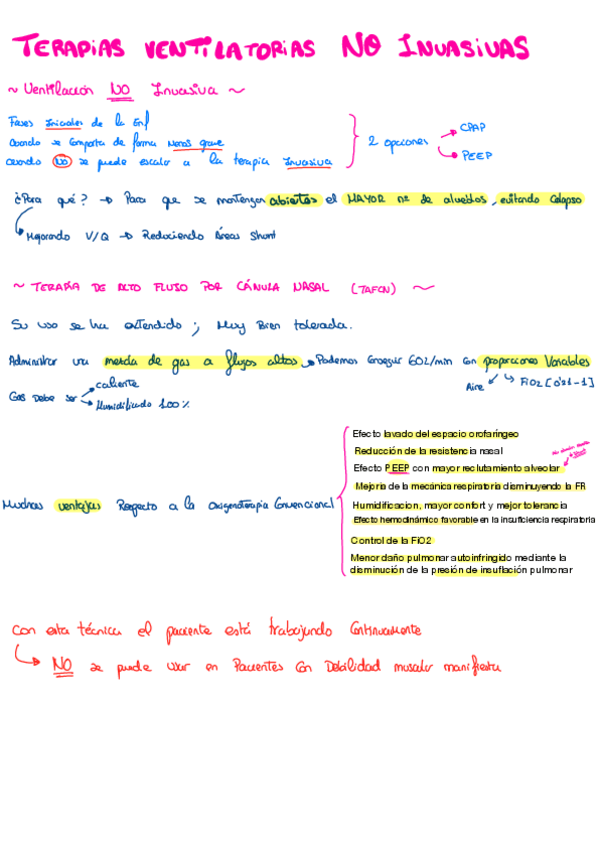 TERAPIAS VENTILATORIAS NO INVASIVAS
~ Ventilación NO Invasiva ~
Fases Iniciales de la Enf
Cuando se comporta de forma menos grave
Cuando NO se puede escalar a la terapia Invasiva
2 opciones
CPAP
PEEP
¿Para qué? → Para que se mantengan abiertos el MAYOR nº de alveolos, evitando Colapso
Mejorando V/Q → Reduciendo Áreas Shunt
~ TERAPIA DE ALTO FLUJO POR CÁNULA NASAL (TAFCN) ~
Su uso se ha extendido ; Muy Bien tolerada.
Administrar una mezcla de gas a flujos altos → Podemos Conseguir 60L/min con proporciones Variables
Aire
FiO2 [0'21-1]
Gas Debe ser
caliente
Humidificado 100%
Muchas ventajas Respecto a la oxigenoterapia Convencional
Efecto lavado del espacio orofaríngeo
Reducción de la resistencia nasal
Efecto PEEP con mayor reclutamiento alveolar
Shunt
Mejoria de la mecánica respiratoria disminuyendo la FR
Humidificacion, mayor confort y mejor tolerancia
Efecto hemodinámico favorable en la insuficiencia respiratoria
Control de la FiO2
Menor daño pulmonar autoinfringido mediante la
disminución de la presión de insuflación pulmonar
Con esta técnica el paciente está trabajando Continuamente
NO se puede usar en Pacientes Con Debilidad muscular manifiesta